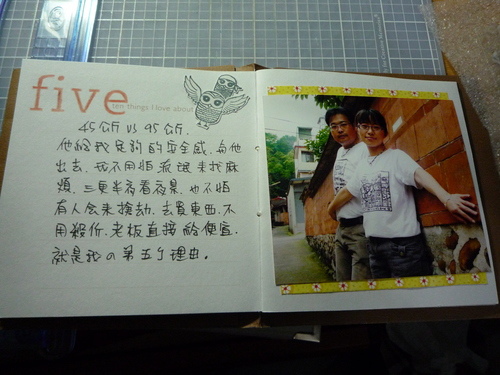 five
ten things I love about
45公斤 vs 95公斤.
他給我足夠的安全感,與他
出去,我不用怕流氓來找麻
煩,三更半夜看夜景,也不怕
有人會來搶劫,去買東西,不
用殺價,老板直接給便宜.
就是我の第五个理由.